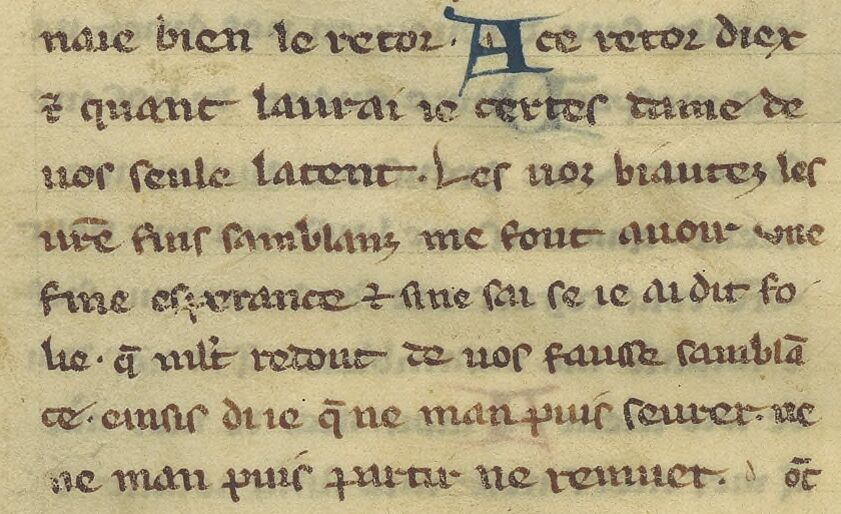 naie bien le retor. A ce retor diex
⁊ quant laurai ie certes dame de
uos seule latent. Les uoz biautez les
urē fins samblanz me font auoir une
fine esperance ⁊ sine sai se ie ai dit fo
lie. q̄ mlt redout de uos fausse samblā
ce. einsis di ie q̄ ne man puis seurer. ne
ne man puis partir ne remuer. ot̄